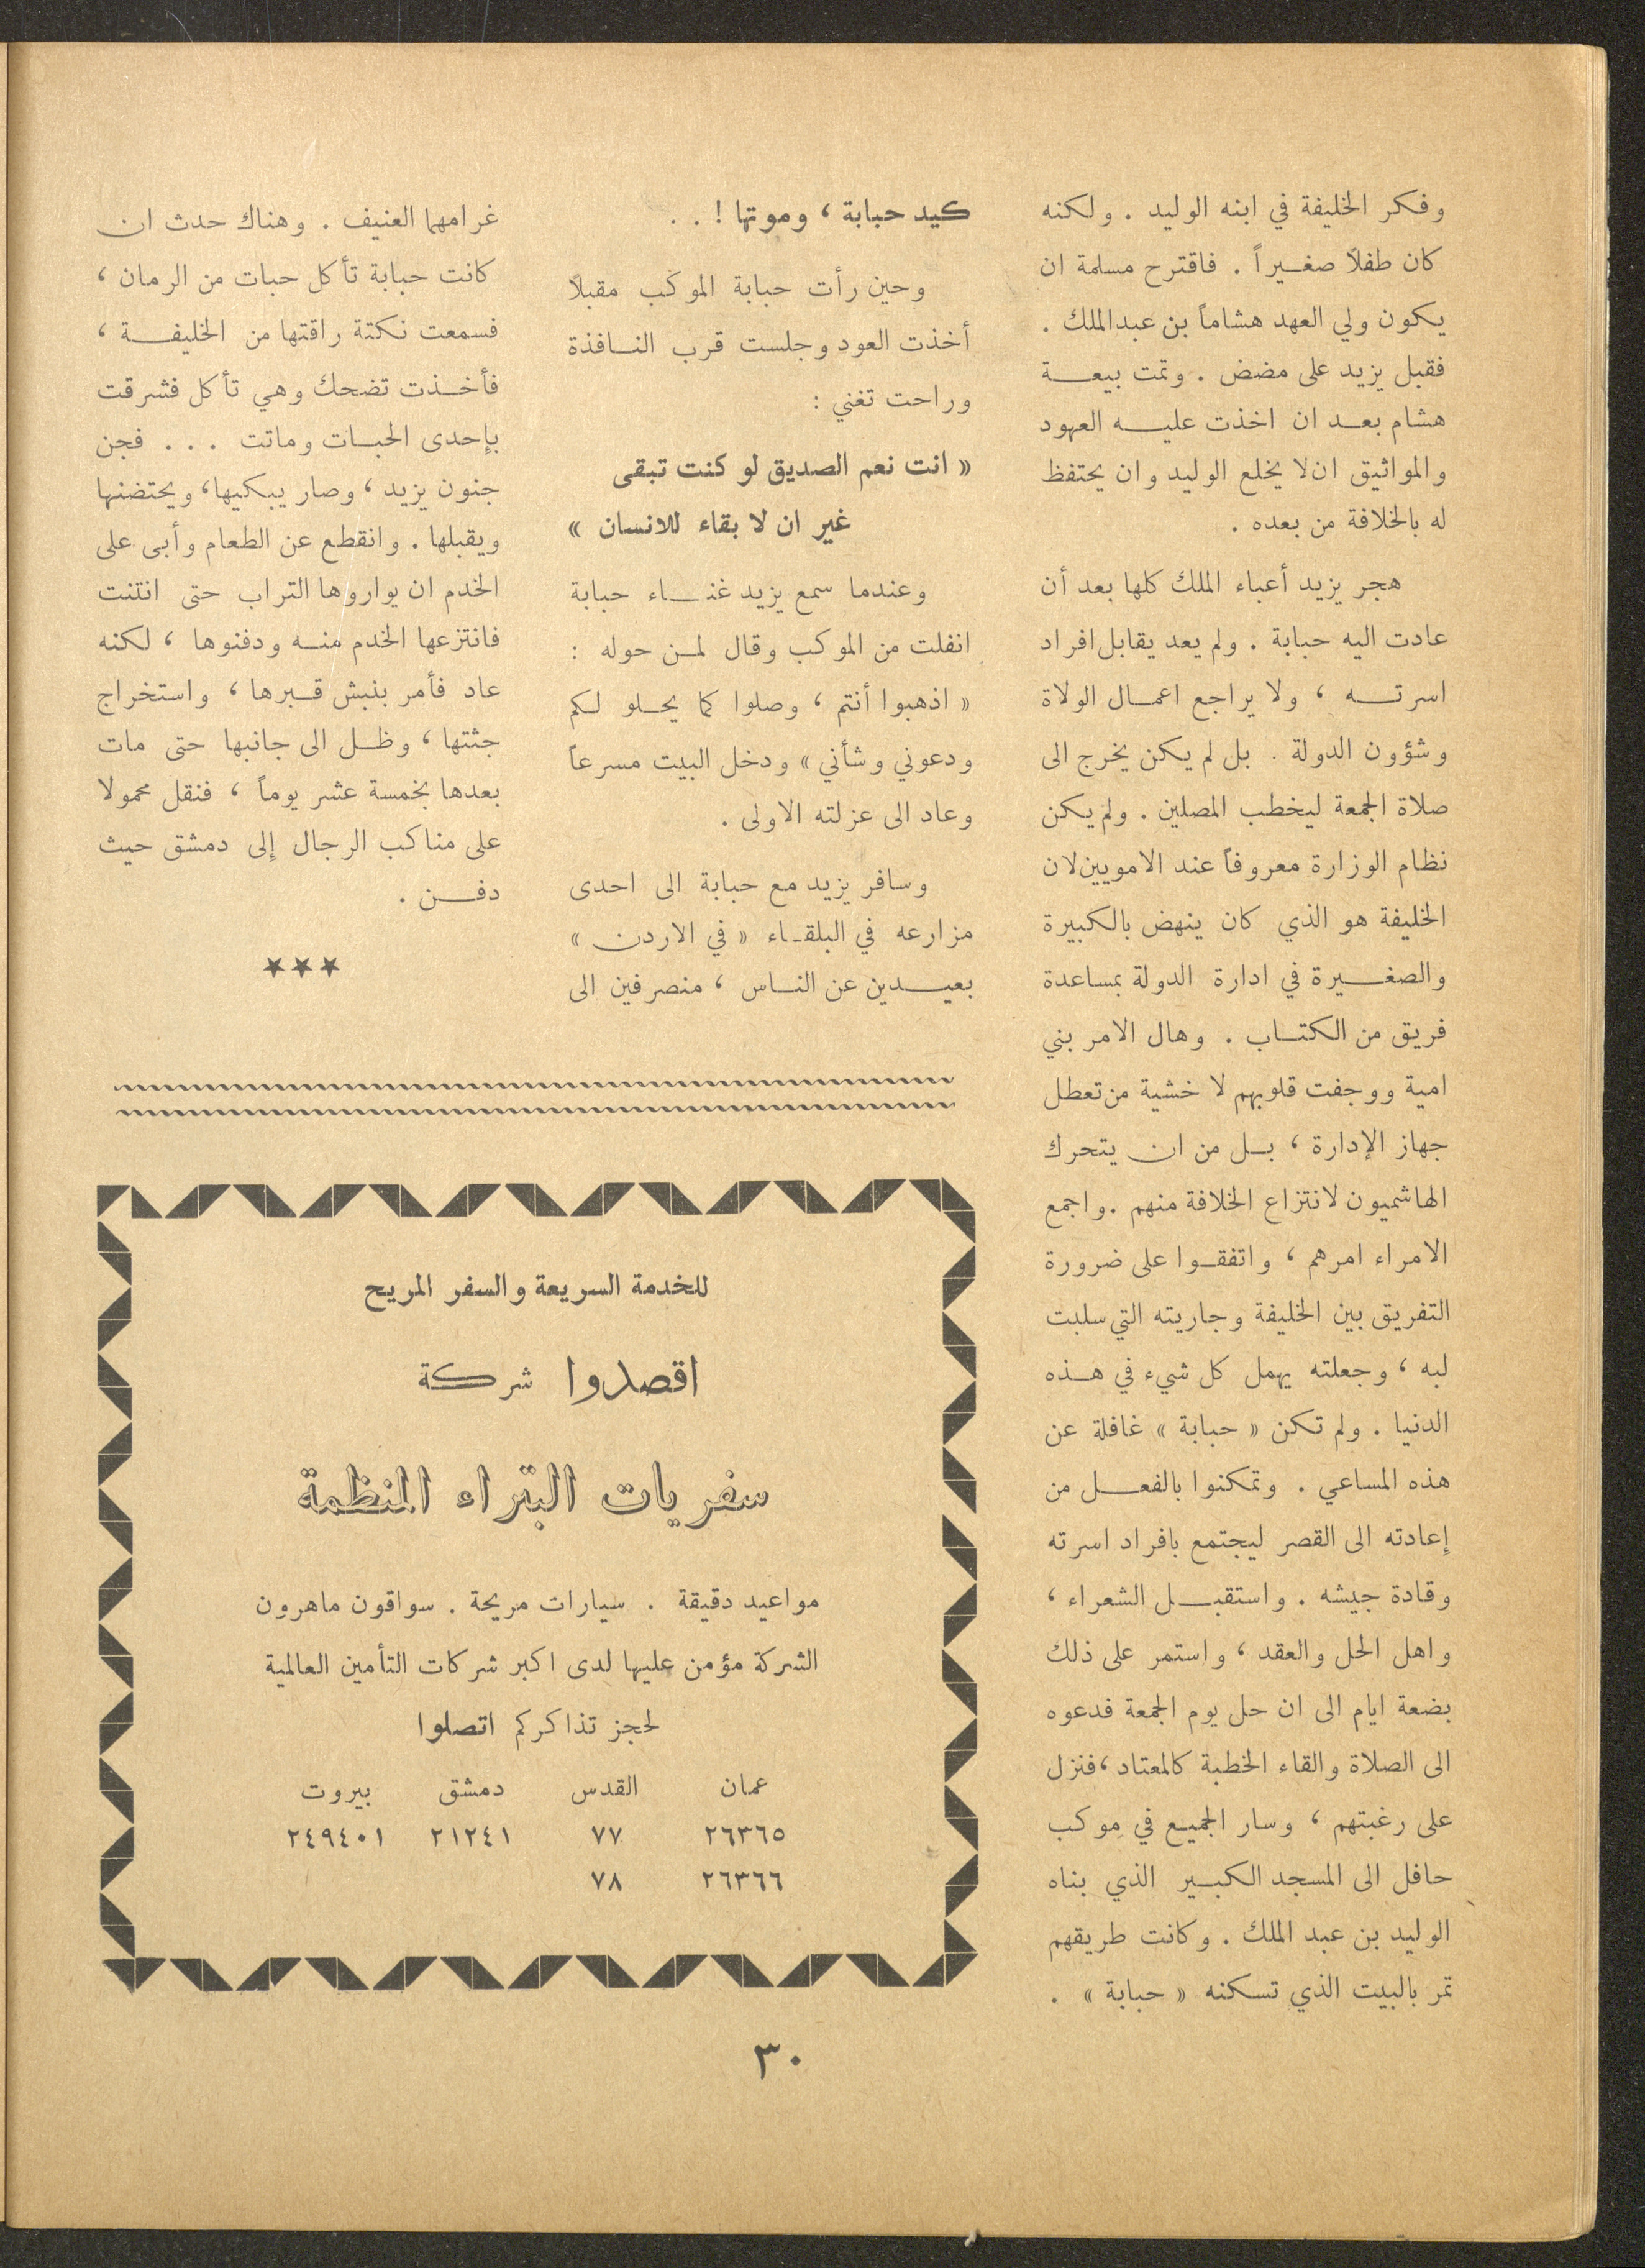 وفكر الخليفة في ابنه الوليد . ولكنه
كان طفلاً صغيراً . فاقترح مسلمة ان
يكون ولي العهد هشاماً بن عبدالملك .
فقبل يزيد على مضض . وتمت بيعة
هشام بعد ان اخذت عليه العهود
والمواثيق ان لا يخلع الوليد وان يحتفظ
له بالخلافة من بعده .
هجر يزيد أعباء الملك كلها بعد أن
عادت اليه حبابة . ولم يعد يقابل افراد
اسرته ، ولا يراجع اعمال الولاة
وشؤون الدولة . بل لم يكن يخرج الى
صلاة الجمعة ليخطب المصلين . ولم يكن
نظام الوزارة معروفاً عند الامويين لان
الخليفة هو الذي كان ينهض بالكبيرة
والصغيرة في ادارة الدولة بمساعدة
فريق من الكتاب . وهال الامر بني
امية ووجفت قلوبهم لا خشية من تعطل
جهاز الإدارة ، بل من ان يتحرك
الهاشميون لانتزاع الخلافة منهم . واجمع
الامراء امرهم ، واتفقوا على ضرورة
التفريق بين الخليفة وجاريته التي سلبت
لبه ، وجعلته يهمل كل شيء في هذه
الدنيا . ولم تكن « حبابة » غافلة عن
هذه المساعي . وتمكنوا بالفعل من
إعادته الى القصر ليجتمع بافراد اسرته
وقادة جيشه . واستقبل الشعراء ،
واهل الحل والعقد ، واستمر على ذلك
بضعة ايام الى ان حل يوم الجمعة فدعوه
الى الصلاة والقاء الخطبة كالمعتاد ، فنزل
على رغبتهم ، وسار الجميع في موكب
حافل الى المسجد الكبير الذي بناه
الوليد بن عبد الملك . وكانت طريقهم
تمر بالبيت الذي تسكنه « حبابة » .
كيد حبابة ، وموتها ! . .
وحين رأت حبابة الموكب مقبلاً
أخذت العود وجلست قرب النافذة
وراحت تغني :
« انت نعم الصديق لو كنت تبقى
غير ان لا بقاء للانسان »
وعندما سمع يزيد غناء حبابة
انفلت من الموكب وقال لمن حوله :
« اذهبوا أنتم ، وصلوا كما يحلو لكم
ودعوني وشأني » ودخل البيت مسرعاً
وعاد الى عزلته الاولى .
وسافر يزيد مع حبابة الى احدى
مزارعه في البلقاء « في الاردن »
بعيدين عن الناس ، منصرفين الى
غرامهما العنيف . وهناك حدث ان
كانت حبابة تأكل حبات من الرمان ،
فسمعت نكتة راقتها من الخليفة ،
فأخذت تضحك وهي تأكل فشرقت
بإحدى الحبات وماتت . . . فجن
جنون يزيد ، وصار يبكيها ، ويحتضنها
ويقبلها . وانقطع عن الطعام وأبى على
الخدم ان يواروها التراب حتى انتنت
فانتزعها الخدم منه ودفنوها ، لكنه
عاد فأمر بنبش قبرها ، واستخراج
جثتها ، وظل الى جانبها حتى مات
بعدها بخمسة عشر يوماً ، فنقل محمولا
على مناكب الرجال إلى دمشق حيث
دفن .
★★★
للخدمة السريعة والسفر المريح
اقصدوا شركة
سفريات البتراء المنظمة
مواعيد دقيقة . سيارات مريحة . سواقون ماهرون
الشركة مؤمن عليها لدى اكبر شركات التأمين العالمية
لحجز تذاكركم اتصلوا
عمان القدس دمشق بيروت
٢٦٣٦٥ ٧٧ ٢١٢٤١ ٢٤٩٤٠١
٢٦٣٦٦ ٧٨
٣٠